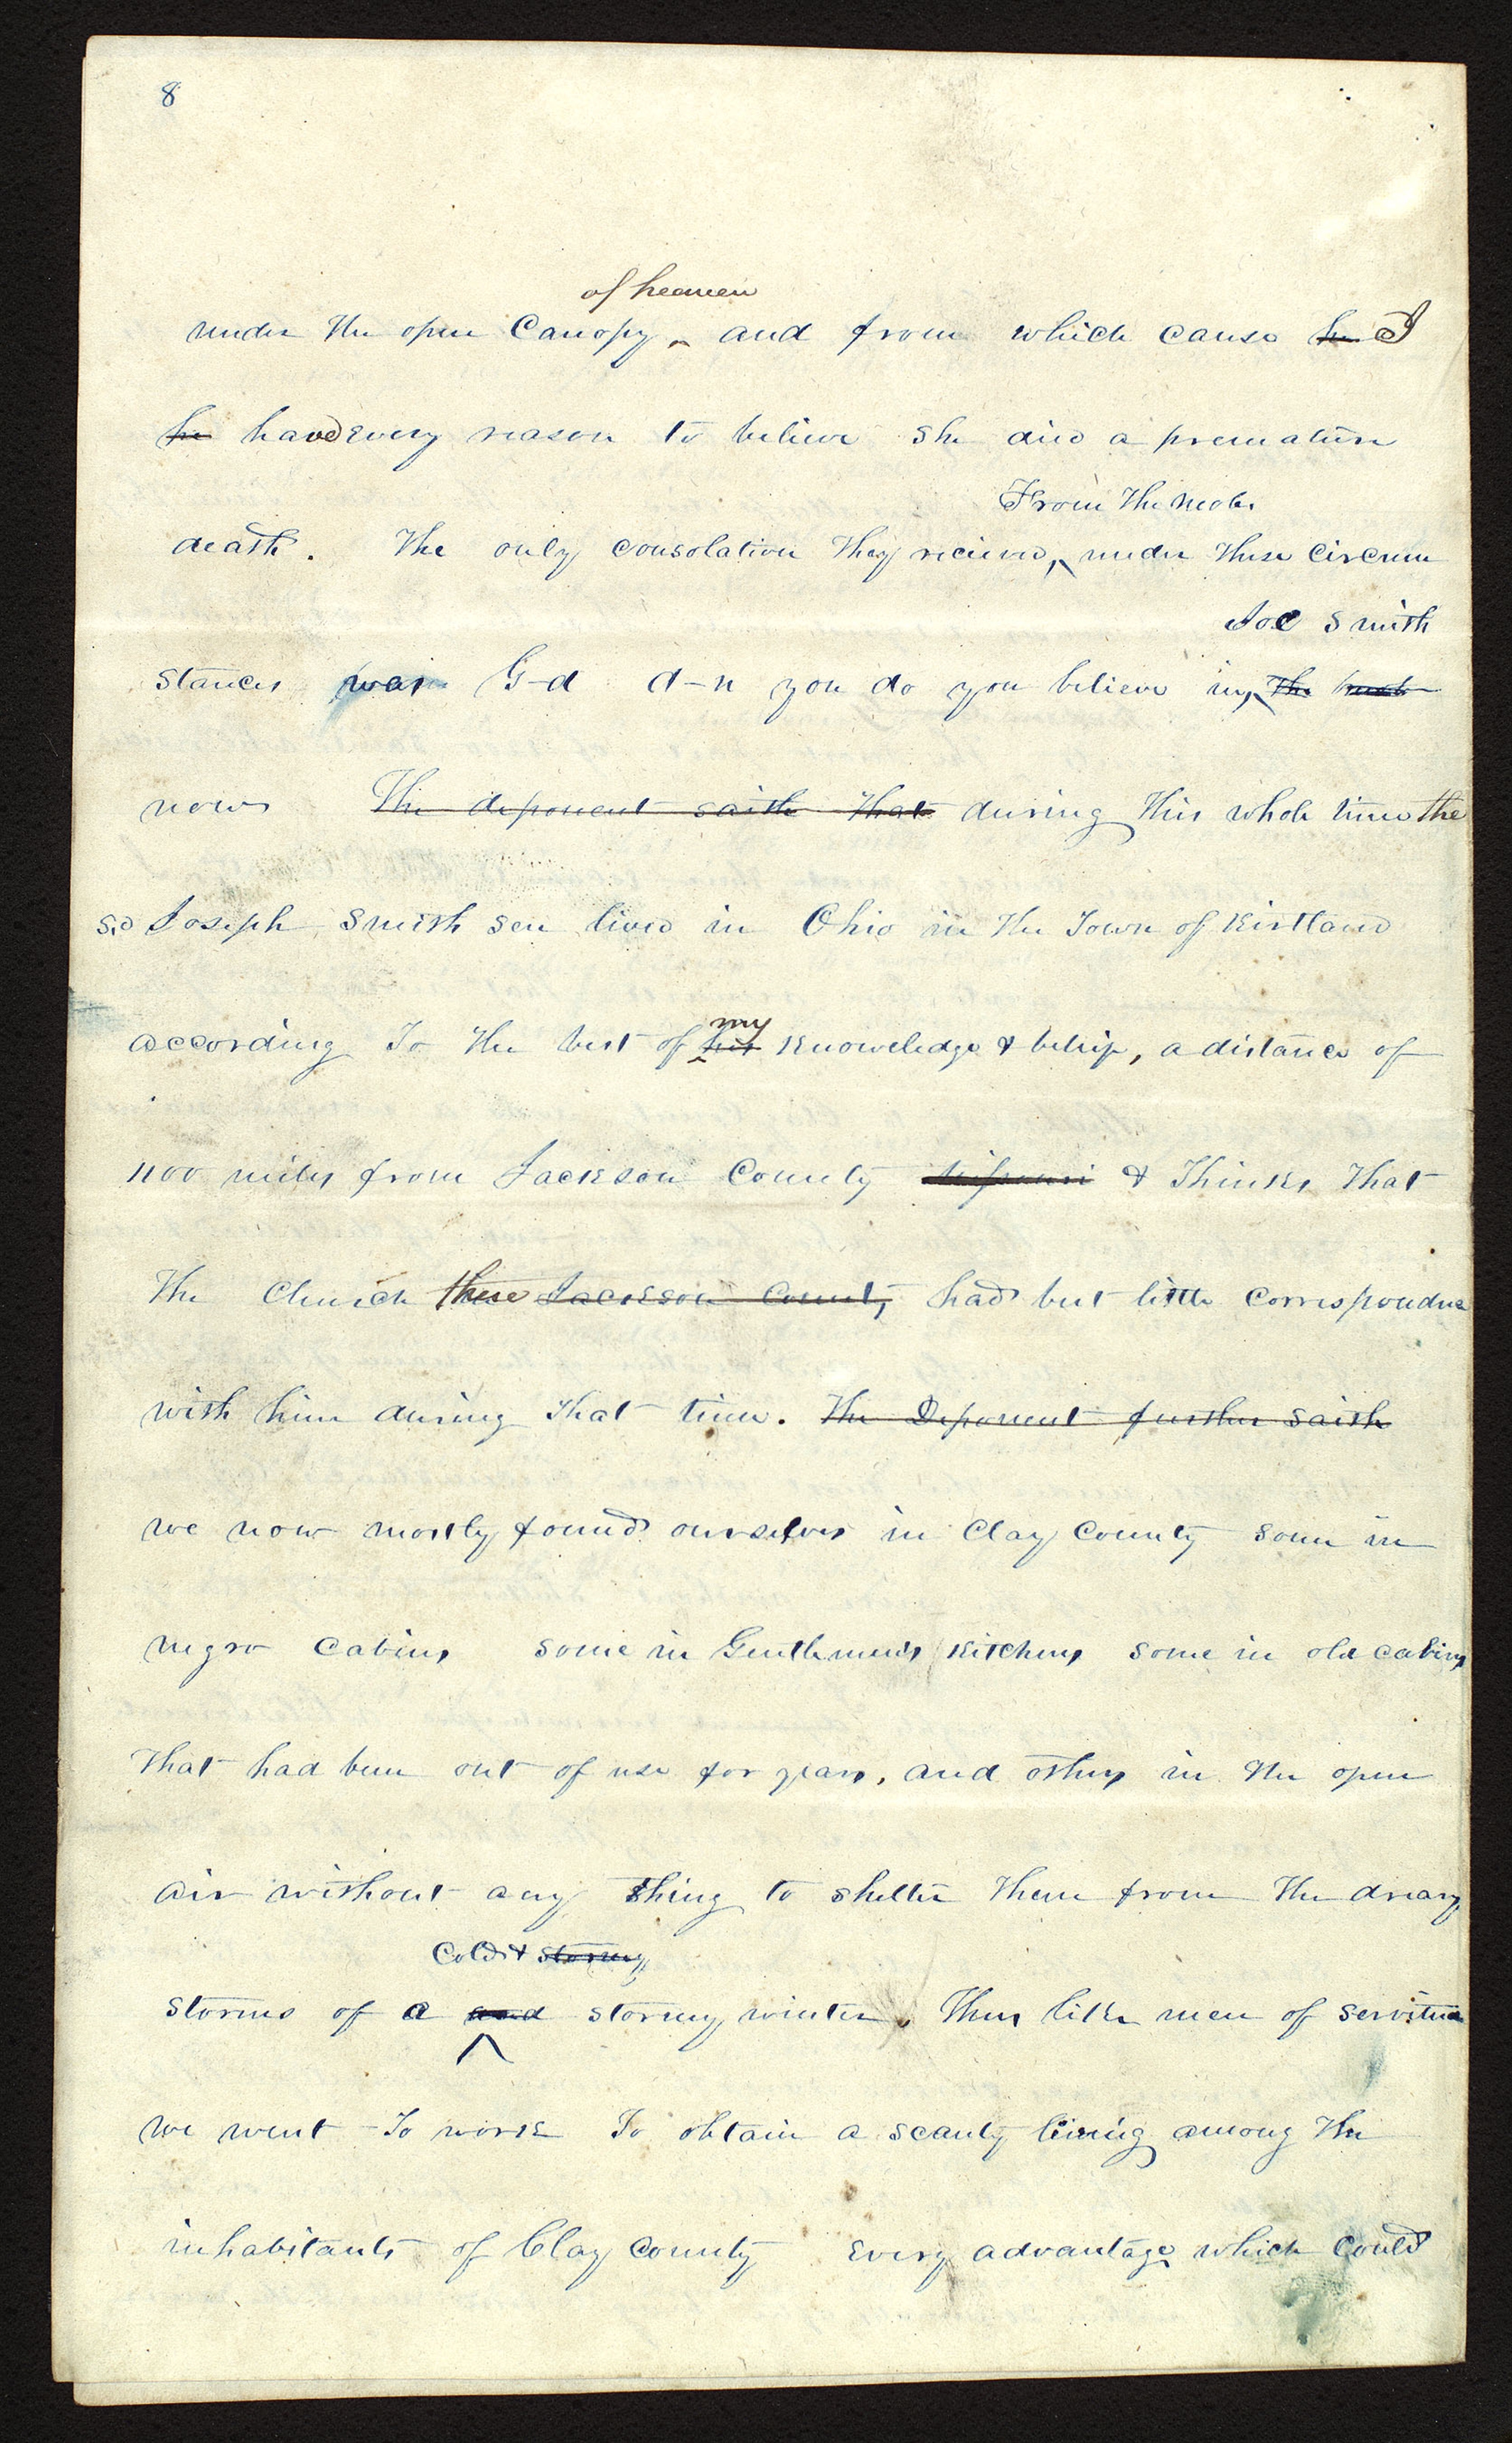 8
of heaven
under the open Canopy, and from which cause he I
he haved every reason to believe she died a premature
From the mobs
death. The only consolation they recieved, under these Circum
Joe Smith
stances was G-d d-n you do you believe in, the
now The deponent saith that during this whole time the
sd Joseph Smith sen lived in Ohio in the Town of Kirtland
according To the best of his my Knoweledge & belief, a distance of
1100 miles from Jackson County Missouri & Thinks that
The Church there Jackson County had but little Correspondnce
with him during that time. The Deponent further saith
we now mostly found ourselves in Clay County some in
negro Cabins some in Gentlemen's Kitchens some in old cabins
that had been out of use for years, and others in the open
air without any thing to shelter them from the dreary
Cold & stormy
storms of a and stormy winter. Thus like men of servitude
we went To work To obtain a scanty living among the
inhabitants of Clay County Every advantage which Could